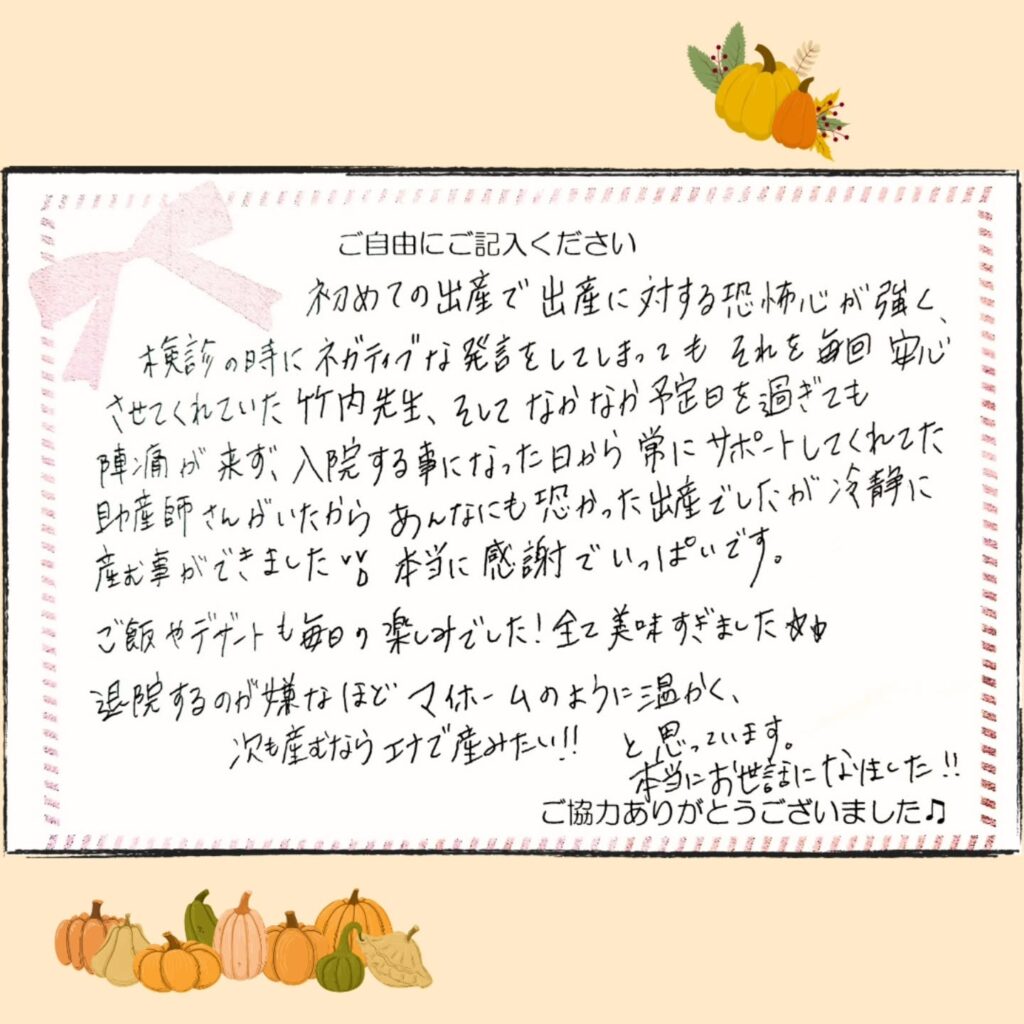 ご自由にご記入ください
初めての出産で出産に対する恐怖心が強く、
検診の時にネガティブな発言をしてしまっても それを毎回 安心
させてくれていた 竹内先生、そして なかなか予定日を過ぎても
陣痛が来ず、入院する事になった日から 常に サポートしてくれてた
助産師さんがいたから あんなにも恐かった出産でしたが 冷静に
産む事ができました 本当に感謝でいっぱいです。
ご飯やデザートも毎日の楽しみでした!全て美味すぎました☆☆
退院するのが嫌なほど マイホームのように温かく、
次も産むなら エナで産みたい!! と思っています。
本当にお世話になりました!!
ご協力ありがとうございました♫